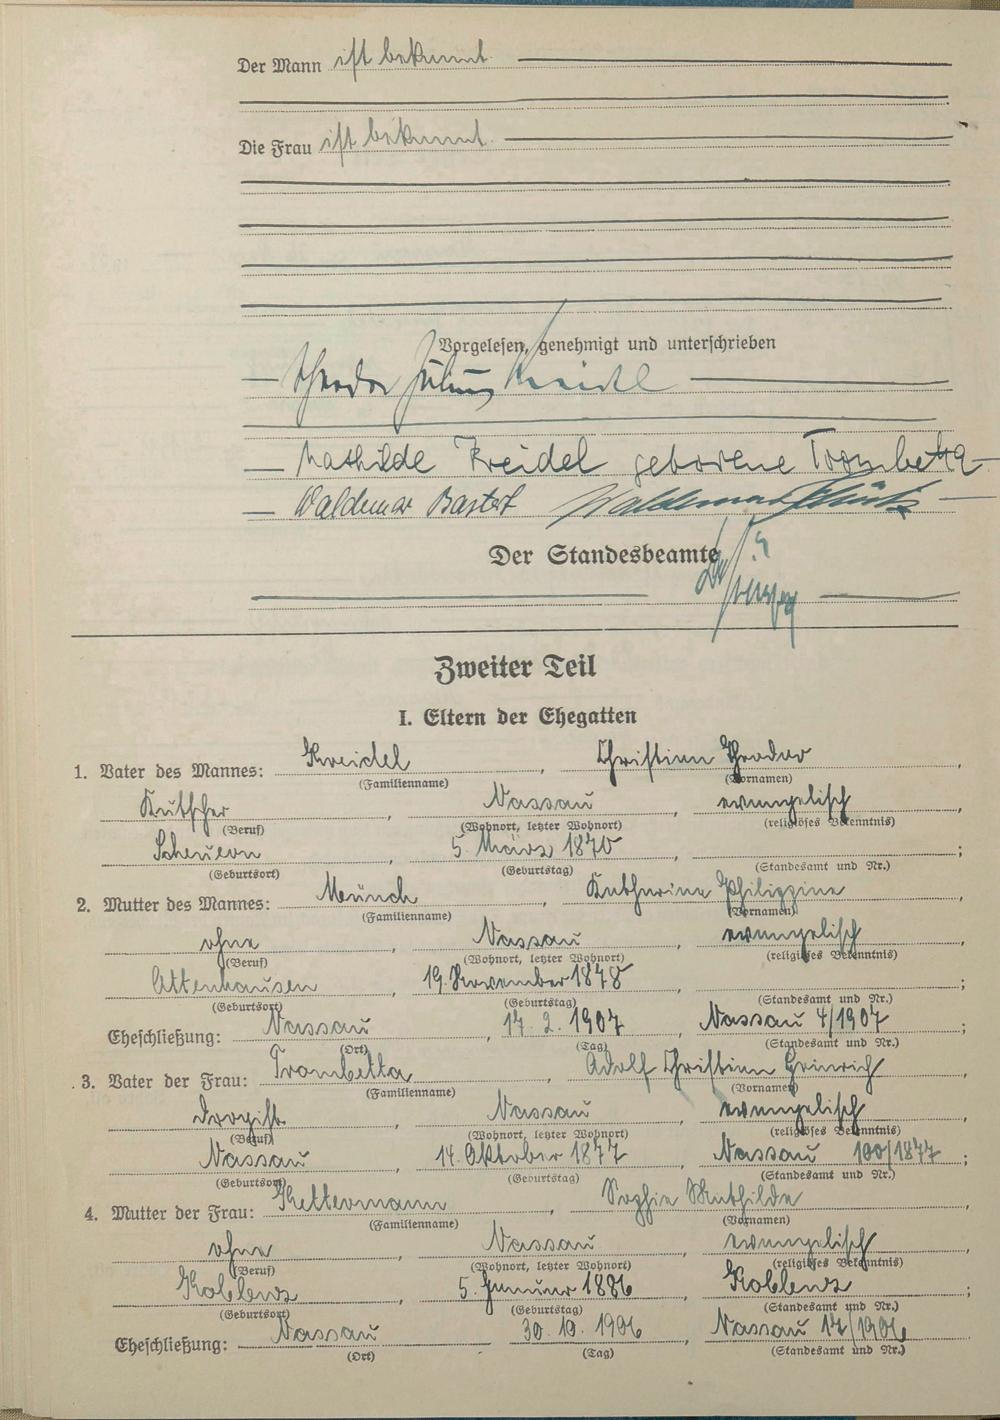 Der Mann ist bekannt.
Die Frau ist bekannt.
Vorgelesen, genehmigt und unterschrieben
Theodor Julius Kreidel
Mathilde Kreidel geborene Trombetta
Waldemar Bastert Waldemar
Der Standesbeamte
Zweiter Teil
I. Eltern der Ehegatten
1. Vater des Mannes: Kreidel, Christian Theodor,
(Familienname) (Vornamen)
Kutscher, Nassau, evangelisch,
(Beruf) (Wohnort, letzter Wohnort) (religiöses Bekenntnis)
Scheuern, 5. März 1870, ;
(Geburtsort) (Geburtstag) (Standesamt und Nr.)
2. Mutter des Mannes: Münch, Katharina Philippine,
(Familienname) (Vornamen)
ohne, Nassau, evangelisch,
(Beruf) (Wohnort, letzter Wohnort) (religiöses Bekenntnis)
Attenhausen, 19. November 1878, ;
(Geburtsort) (Geburtstag) (Standesamt und Nr.)
Eheschließung: Nassau, 17. 2. 1907, Nassau 4/1907;
(Ort) (Tag) (Standesamt und Nr.)
3. Vater der Frau: Trombetta, Adolf Christian Heinrich,
(Familienname) (Vornamen)
Drogist, Nassau, evangelisch,
(Beruf) (Wohnort, letzter Wohnort) (religiöses Bekenntnis)
Nassau, 14. Oktober 1877, Nassau 100/1877;
(Geburtsort) (Geburtstag) (Standesamt und Nr.)
4. Mutter der Frau: Kettermann, Sophie Mathilde,
(Familienname) (Vornamen)
ohne, Nassau, evangelisch,
(Beruf) (Wohnort, letzter Wohnort) (religiöses Bekenntnis)
Koblenz, 5. Januar 1886, Koblenz;
(Geburtsort) (Geburtstag) (Standesamt und Nr.)
Eheschließung: Nassau, 30. 10. 1906, Nassau 17/1906
(Ort) (Tag) (Standesamt und Nr.)